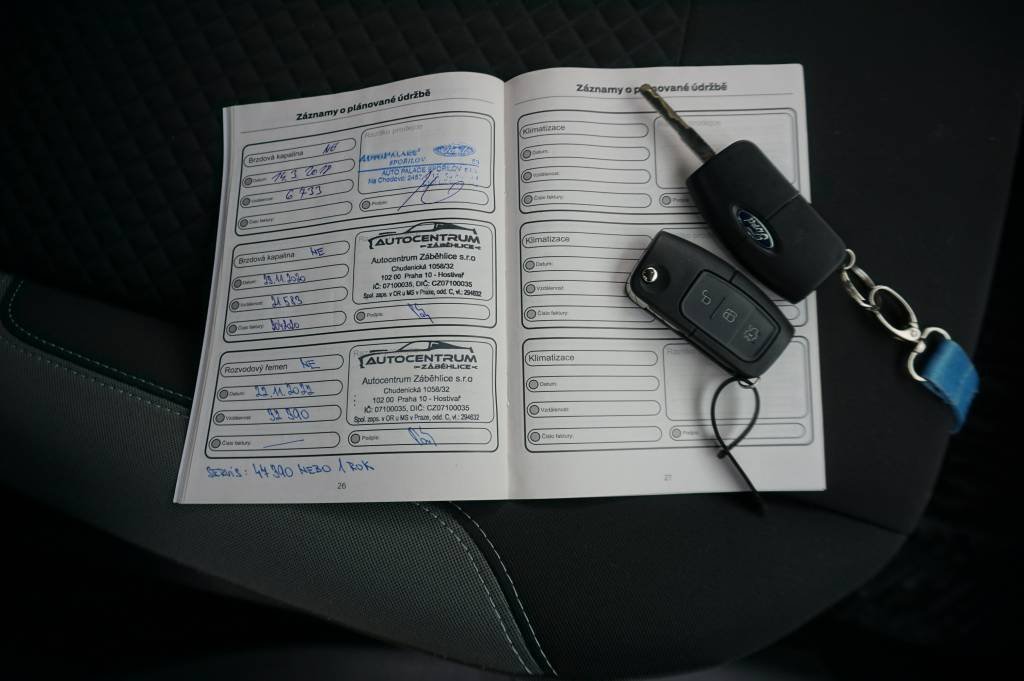 Záznamy o plánované údržbě
Brzdová kapalina NE
Datum: 14.3.2018
Vzdálenost: 6 733
Číslo faktury:
Razítko prodejce
AUTO PALACE
SPOŘILOV
Ford
AUTO PALACE SPOŘILOV s.r.o.
Na Chodovci 2457
Podpis:
Brzdová kapalina NE
Datum: 23.11.2020
Vzdálenost: 21 583
Číslo faktury:
AUTOCENTRUM
ZÁBĚHLICE
Autocentrum Záběhlice s.r.o
Chudenická 1058/32
102 00 Praha 10 - Hostivař
IČ: 07100035, DIČ: CZ07100035
Spol. zaps. v OR u MS v Praze, odd. C, vl.: 294632
Podpis:
Rozvodový řemen NE
Datum: 22.11.2022
Vzdálenost: 32 390
Číslo faktury:
AUTOCENTRUM
ZÁBĚHLICE
Autocentrum Záběhlice s.r.o
Chudenická 1058/32
102 00 Praha 10 - Hostivař
IČ: 07100035, DIČ: CZ07100035
Spol. zaps. v OR u MS v Praze, odd. C, vl.: 294632
Podpis:
SERVIS: 47 390 NEBO 1 ROK
26
Záznamy o plánované údržbě
Klimatizace
Datum:
Vzdálenost:
Číslo faktury:
Klimatizace
Datum:
Vzdálenost:
Číslo faktury:
Klimatizace
Datum:
Vzdálenost:
Číslo faktury:
Podpis:
27
Ford